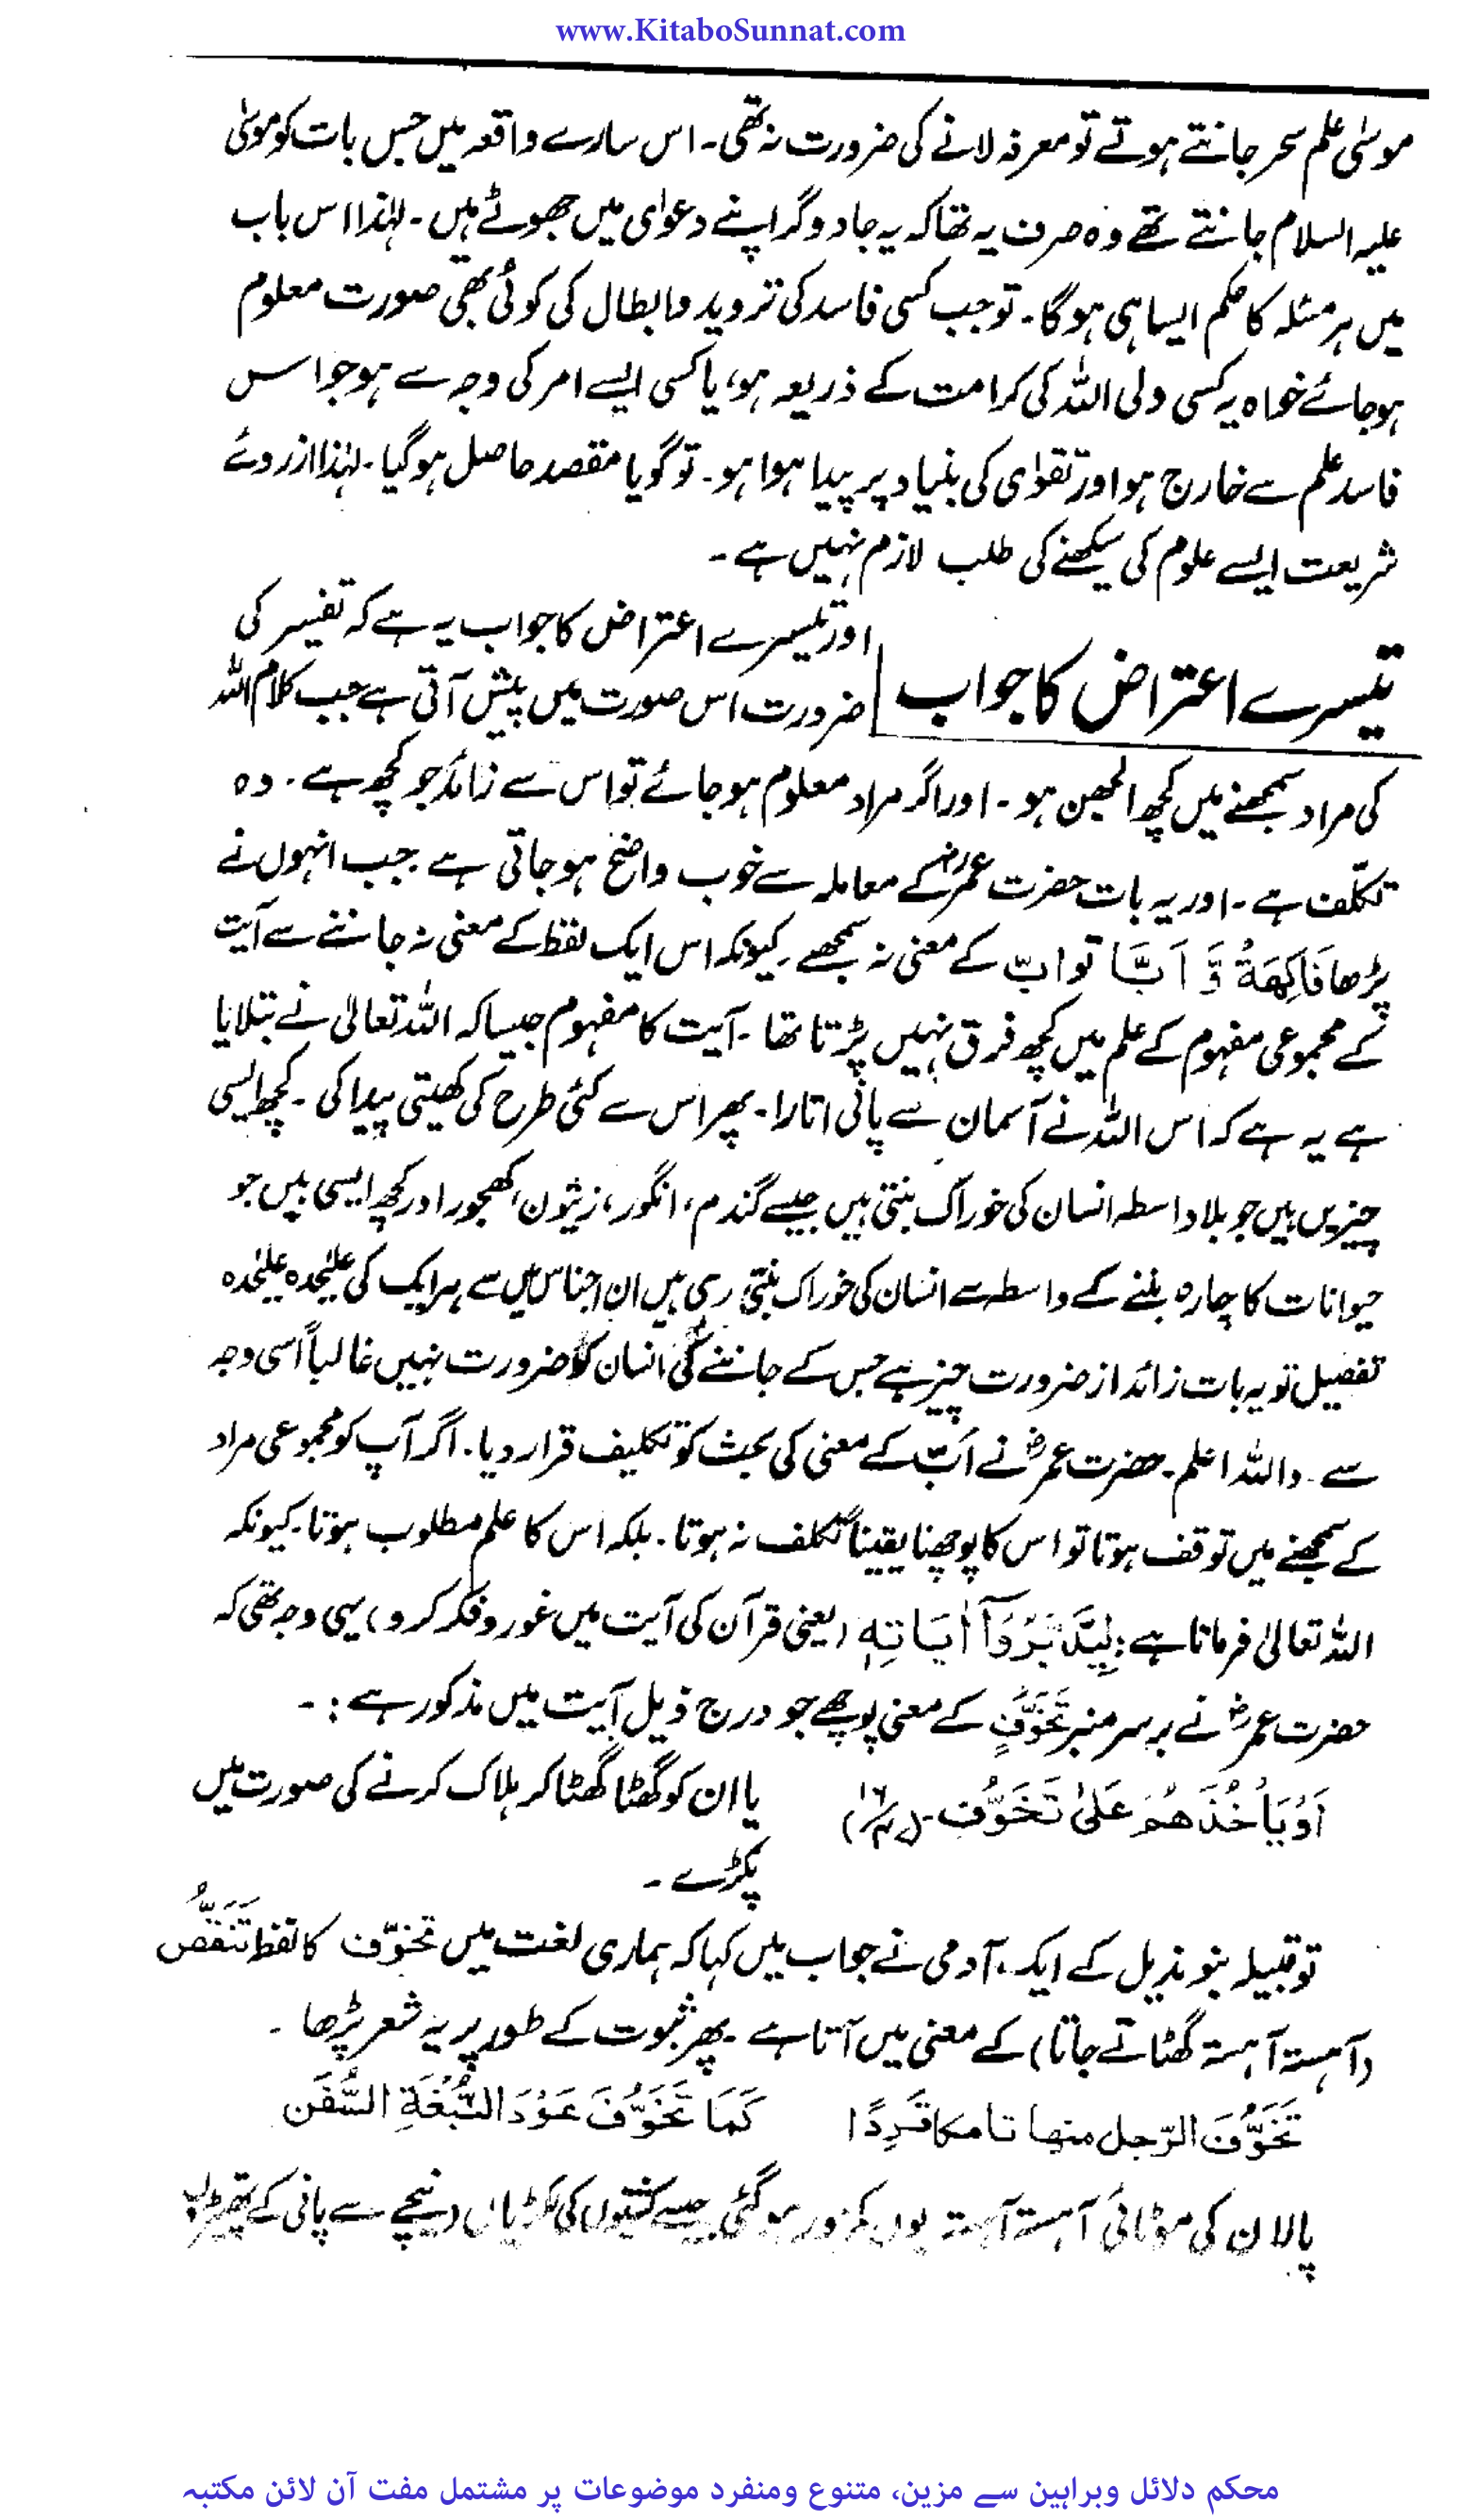 www.KitaboSunnat.com
موسٰی علم سحر جانتے ہوتے تو معرفہ لانے کی ضرورت نہ تھی۔ اس سارے واقعہ میں جس بات کو موسٰی
علیہ السلام جانتے تھے وہ صرف یہ تھا کہ یہ جادوگر اپنے دعوٰی میں جھوٹے ہیں۔ لہٰذا اس باب
میں ہر مسئلہ کا حکم ایسا ہی ہوگا۔ تو جب کسی فاسد کی تردید و ابطال کی کوئی بھی صورت معلوم
ہو جائے خواہ یہ کسی ولی اللہ کی کرامت کے ذریعہ ہو، یا کسی ایسے امر کی وجہ سے ہو جو اس
فاسد علم سے خارج ہو اور تقوٰی کی بنیاد پر پیدا ہوا ہو۔ تو گویا مقصد حاصل ہوگیا۔ لہٰذا ازروئے
شریعت ایسے علوم کی سیکھنے کی طلب لازم نہیں ہے۔
تیسرے اعتراض کا جواب
اور تیسرے اعتراض کا جواب یہ ہے کہ تفسیر کی
ضرورت اس صورت میں پیش آتی ہے جب کلام اللہ
کی مراد سمجھنے میں کچھ الجھن ہو۔ اور اگر مراد معلوم ہو جائے تو اس سے زائد جو کچھ ہے۔ وہ
تکلّف ہے۔ اور یہ بات حضرت عمرؓ کے معاملہ سے خوب واضح ہو جاتی ہے جب انہوں نے
پڑھا فَاكِهَةً وَّ اَبًّا تو ابّ کے معنی نہ سمجھے۔ کیونکہ اس ایک لفظ کے معنی نہ جاننے سے آیت
کے مجموعی مفہوم کے علم میں کچھ فرق نہیں پڑتا تھا۔ آیت کا مفہوم جیسا کہ اللہ تعالیٰ نے بتلایا
ہے یہ ہے کہ اس اللہ نے آسمان سے پانی اتارا۔ پھر اس سے کئی طرح کی کھیتی پیدا کی۔ کچھ ایسی
چیزیں ہیں جو بلا واسطہ انسان کی خوراک بنتی ہیں جیسے گندم، انگور، زیتون، کھجور اور کچھ ایسی ہیں جو
حیوانات کا چارہ بننے کے واسطہ سے انسان کی خوراک بنتی رہی ہیں ان اجناس میں سے ہر ایک کی علیٰحدہ علیٰحدہ
تفصیل تو یہ بات زائد از ضرورت چیز ہے جس کے جاننے کی انسان کو ضرورت نہیں غالباً اسی وجہ
سے۔ واللہ اعلم۔ حضرت عمرؓ نے اَبّ کے معنی کی بحث کو تکلیف قرار دیا۔ اگر آپ کو مجموعی مراد
کے سمجھنے میں توقف ہوتا تو اس کا پوچھنا یقیناً تکلف نہ ہوتا۔ بلکہ اس کا علم مطلوب ہوتا۔ کیونکہ
اللہ تعالیٰ فرماتا ہے: لِيَدَّبَّرُوٓا اٰيَاتِهٖ (یعنی قرآن کی آیت میں غور و فکر کرو) یہی وجہ تھی کہ
حضرت عمرؓ نے برسر منبر تَخَوُّفٍ کے معنی پوچھے جو درج ذیل آیت میں مذکور ہے:۔
اَوْ يَاْخُذَهُمْ عَلٰى تَخَوُّفٍ۔
یا ان کو گھٹا گھٹا کر ہلاک کرنے کی صورت میں
پکڑے۔
تو قبیلہ بنو ہذیل کے ایک آدمی نے جواب میں کہا کہ ہماری لغت میں تخوّف کا لفظ تَنَقُّص
(آہستہ آہستہ گھٹاتے جانا) کے معنی میں آتا ہے۔ پھر ثبوت کے طور پر یہ شعر پڑھا۔
تَخَوَّفَ الرّحل منها تامكا قَرِدًا كَمَا تَخَوَّفَ عَوْدَ النُّبْغَةِ السَّفَن
پالان کی موٹائی آہستہ آہستہ یوں کمزور ہوگئی جیسے کشتیوں کی لکڑیاں (نیچے سے پانی کے
محکم دلائل وبراہین سے مزین، متنوع ومنفرد موضوعات پر مشتمل مفت آن لائن مکتبہ